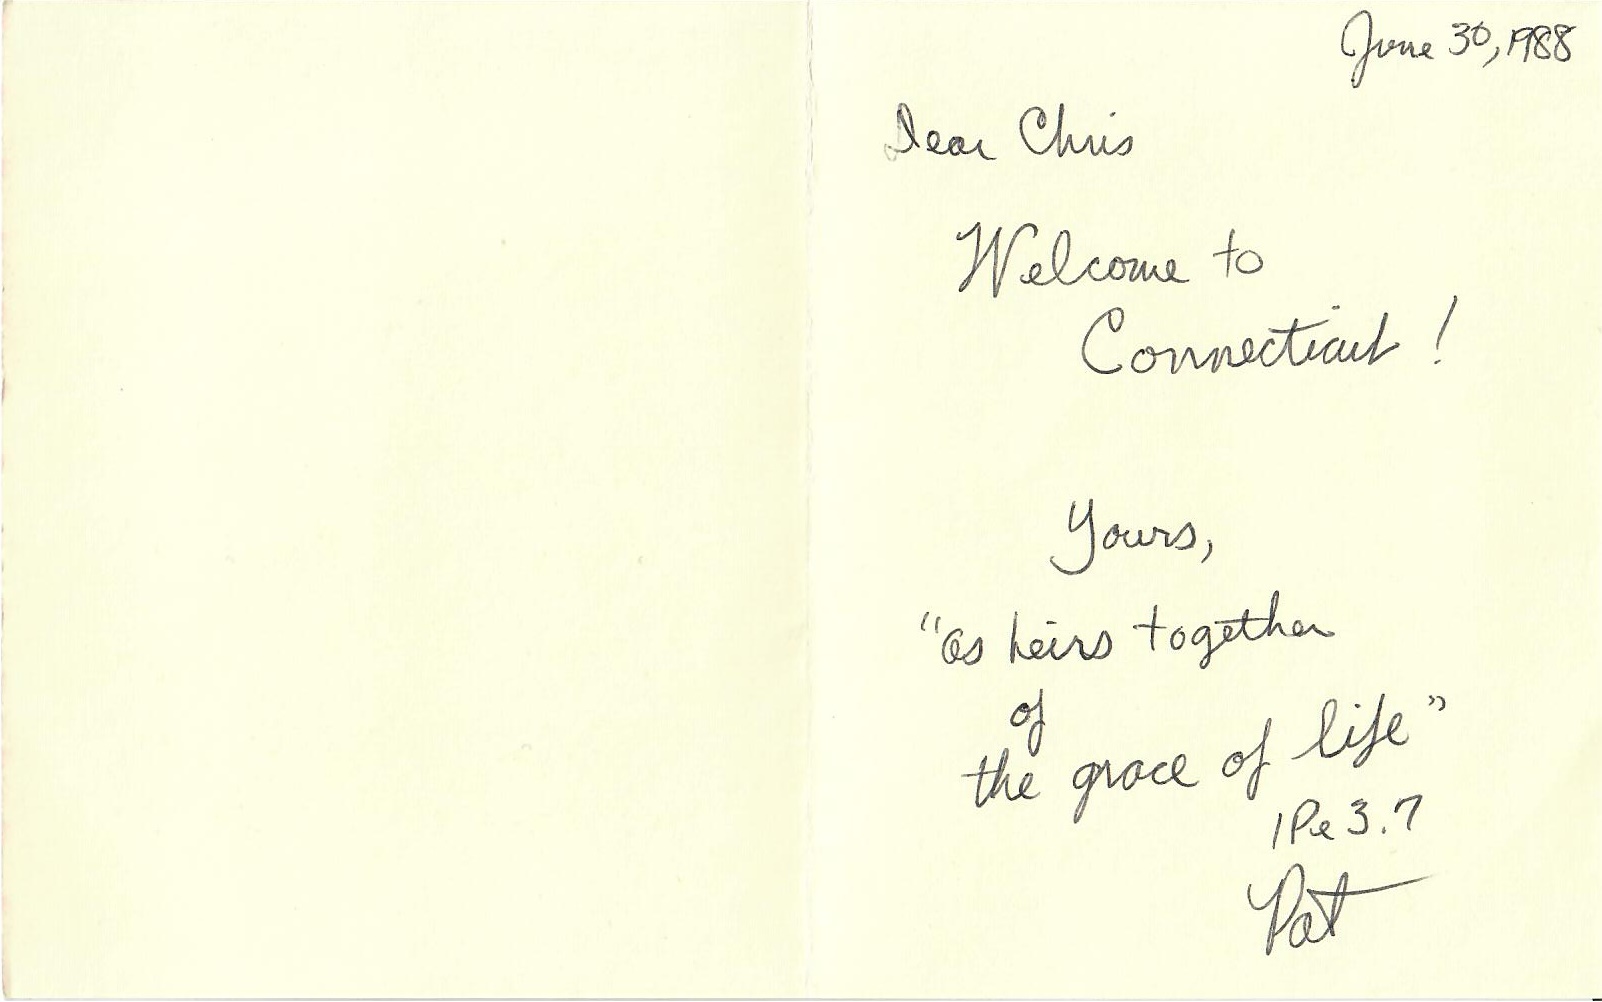 June 30, 1988
Dear Chris
Welcome to
Connecticut !
Yours,
"as heirs together
of
the grace of life"
1Pe 3.7
Pat